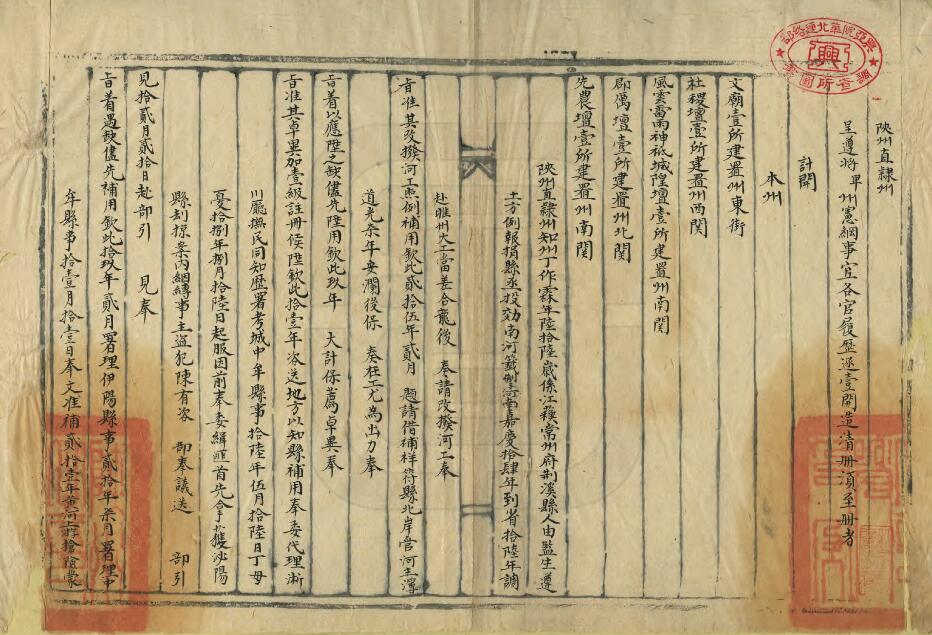 陝州直隸州
呈遵將卑州憲綱事宜各官履歷逐壹開造清冊須至冊者
計開
本州
文廟壹所建置州東街
社稷壇壹所建置州西関
風雲雷雨神祇城隍壇壹所建置州南関
郡厲壇壹所建置州北関
先農壇壹所建置州南関
陝州直隸州知州丁作霖年陸拾陸歲係江蘇常州府荆溪縣人由監生遵
土方例報捐縣丞投効南河籤掣河南嘉慶拾肆年到省拾陸年調
赴睢州大工當差合龍後 奏請改撥河工奉
旨准其改撥河工照例補用欽此貳拾伍年貳月 題請借補祥符縣北岸管河主簿
道光柒年安瀾後保 奏在工尤為出力奉
旨着以應陞之缺儘先陞用欽此玖年 大計保薦卓異奉
旨准其卓異加壹級註冊候陞欽此拾壹年咨送地方以知縣補用奉委代理淅
川廳撫民同知歷署考城中牟縣事拾陸年伍月拾陸日丁母
憂拾捌年捌月拾陸日起服因前奉委緝匪首先拿獲泌陽
縣刦掠案內綑縛事主盜犯陳有咨 部奉議送 部引
見拾貳月貳拾日赴部引 見奉
旨着遇缺儘先補用欽此拾玖年貳月署理伊陽縣事貳拾年柒月署理中
牟縣事拾壹月拾壹日奉文准補貳拾壹年黃河上游搶險蒙
興亞院華北連絡部
調查所圖書